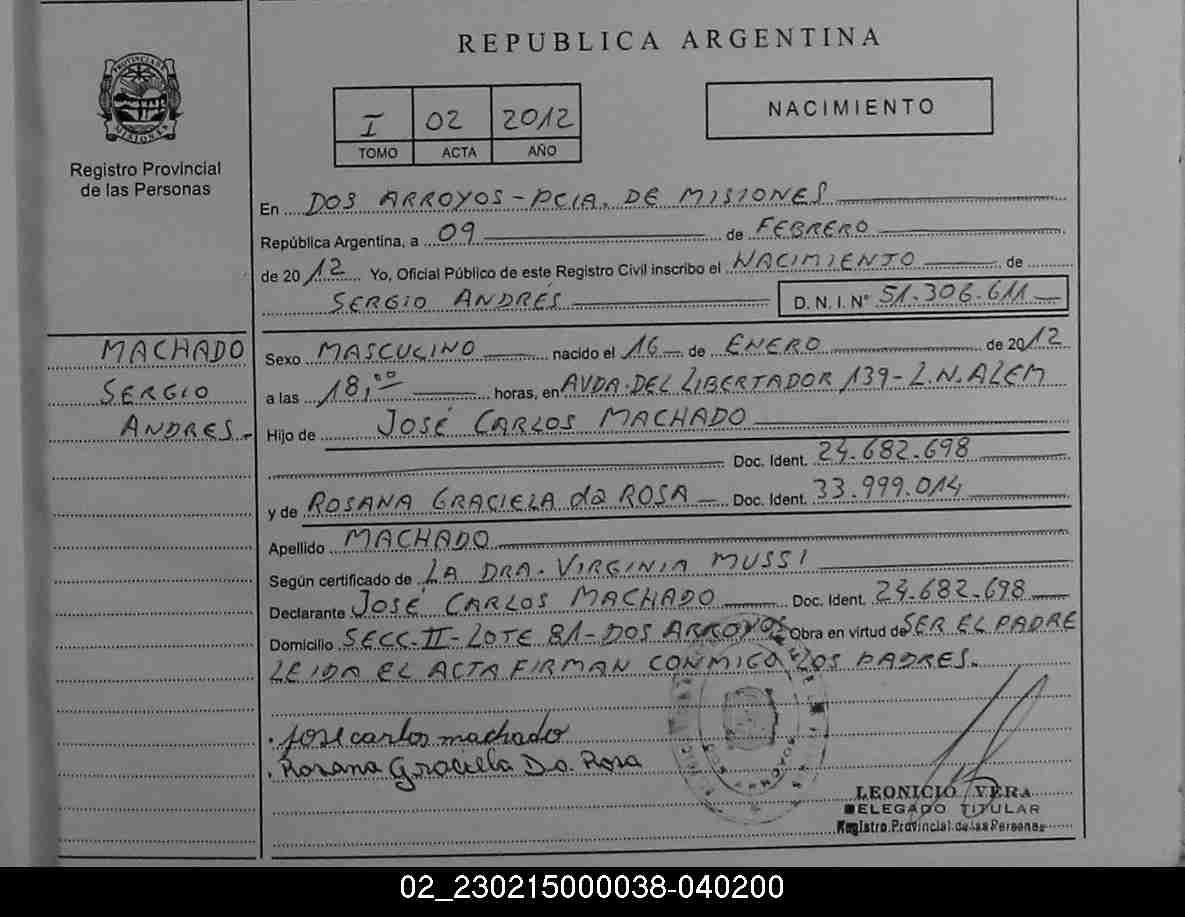 REPUBLICA ARGENTINA
PROVINCIA DE
MISIONES
Registro Provincial
de las Personas
I 02 2012
TOMO ACTA AÑO
NACIMIENTO
En DOS ARROYOS - PCIA. DE MISIONES
República Argentina, a 09 de FEBRERO
de 2012 Yo, Oficial Público de este Registro Civil inscribo el NACIMIENTO de
SERGIO ANDRÉS D. N. I. N° 51.306.611
MACHADO
SERGIO
ANDRES.
Sexo MASCULINO nacido el 16 de ENERO de 2012
a las 18,00 horas, en AVDA. DEL LIBERTADOR 139 - L.N. ALEM
Hijo de JOSÉ CARLOS MACHADO
Doc. Ident. 24.682.698
y de ROSANA GRACIELA da ROSA Doc. Ident. 33.999.014
Apellido MACHADO
Según certificado de LA DRA. VIRGINIA MUSSI
Declarante JOSÉ CARLOS MACHADO Doc. Ident. 24.682.698
Domicilio SECC. II - LOTE 81 - DOS ARROYOS Obra en virtud de SER EL PADRE
LEIDA EL ACTA FIRMAN CONMIGO LOS PADRES.
. jose carlos machado
. Rosana Graciela Da Rosa
LEONICIO VERA
DELEGADO TITULAR
Registro Provincial de las Personas
02_230215000038-040200